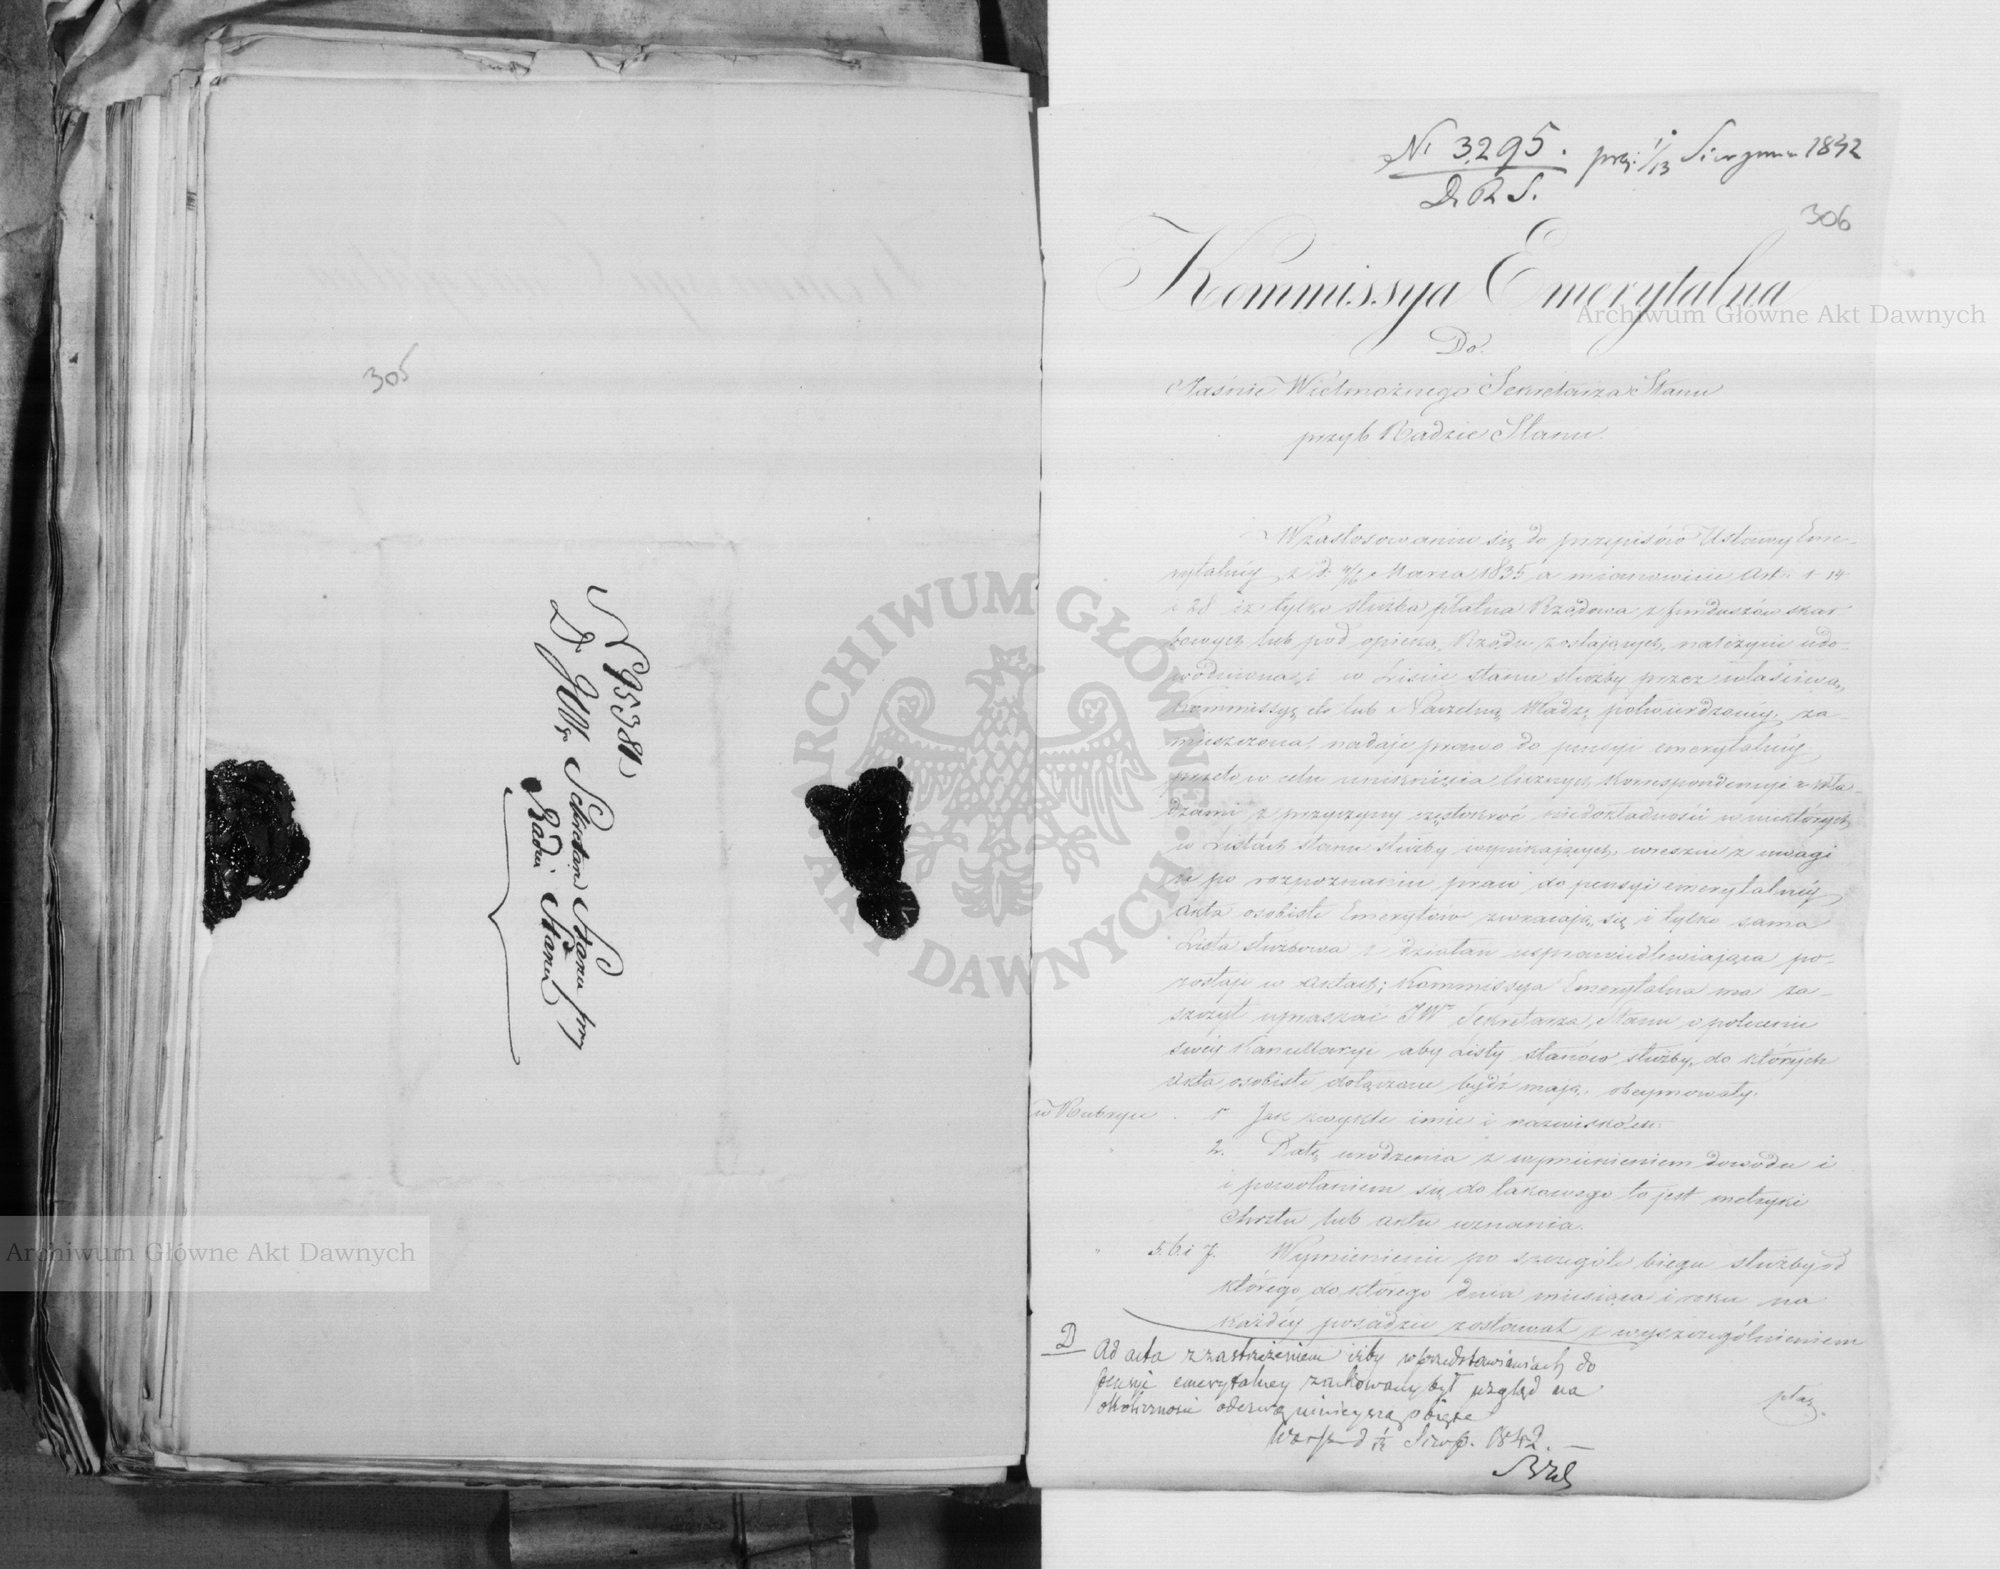 305
N 95381
Do JWgo Sekretarza Stanu przy
Radzie Stanu
No 3295. prez. 1/13 Sierpnia 1842
D. R. S.
306
Kommissya Emerytalna
Do
Jaśnie Wielmożnego Sekretarza Stanu
przy Radzie Stanu.
W zastosowaniu się do przepisów Ustawy Eme-
rytalnéy z d. Marca 1835 a mianowicie Art: 1 14
i 28 iż tylko służba płatna Rządowa z funduszów skar-
bowych lub pod opieką Rządu zostających, należycie udo-
wodniona, i w Liście stanu służby przez właściwą
Kommissyę do lub Naczelną Władzę potwierdzonéy, za-
mieszczona, nadaje prawo do pensyi emerytalnéy,
przeto w celu uniknięcia licznych korrespondencyi z Wła-
dzami z przyczyny częstokroć niedokładności w niektórych
w Listach stanu służby wynikających, wreszcie z uwagi
że po rozpoznaniu praw do pensyi emerytalnéy
akta osobiste Emerytów zwracają się i tylko sama
Lista służbowa z działań usprawiedliwiająca po-
zostaje w aktach; Kommissya Emerytalna ma za-
szczyt upraszać JWo Sekretarza Stanu o polecenie
swéy Kancellaryi aby Listy stanów służby, do których
akta osobiste dołączane bydź mają, obeymowały.
w Rubryce 1o Jak zwykle imie i nazwisko etc.
" 2. Datę urodzenia z wymienieniem dowodu i
i powołaniem się do takowego to jest metryki
Chrztu lub aktu uznania.
" 5. 6. i 7. Wymienienie po szczególe biegu służby od
którego do którego dnia miesiąca i roku na
każdéy posadzie zostawał z wyszczególnieniem
płac
D Ad acta z zastrzeżeniem iżby w przedstawieniach do
pensyi emerytalney zachowany był wzgląd na
okoliczności odezwą ninieyszą objęte
Warsz d 1/13 Sierp. 1842. —